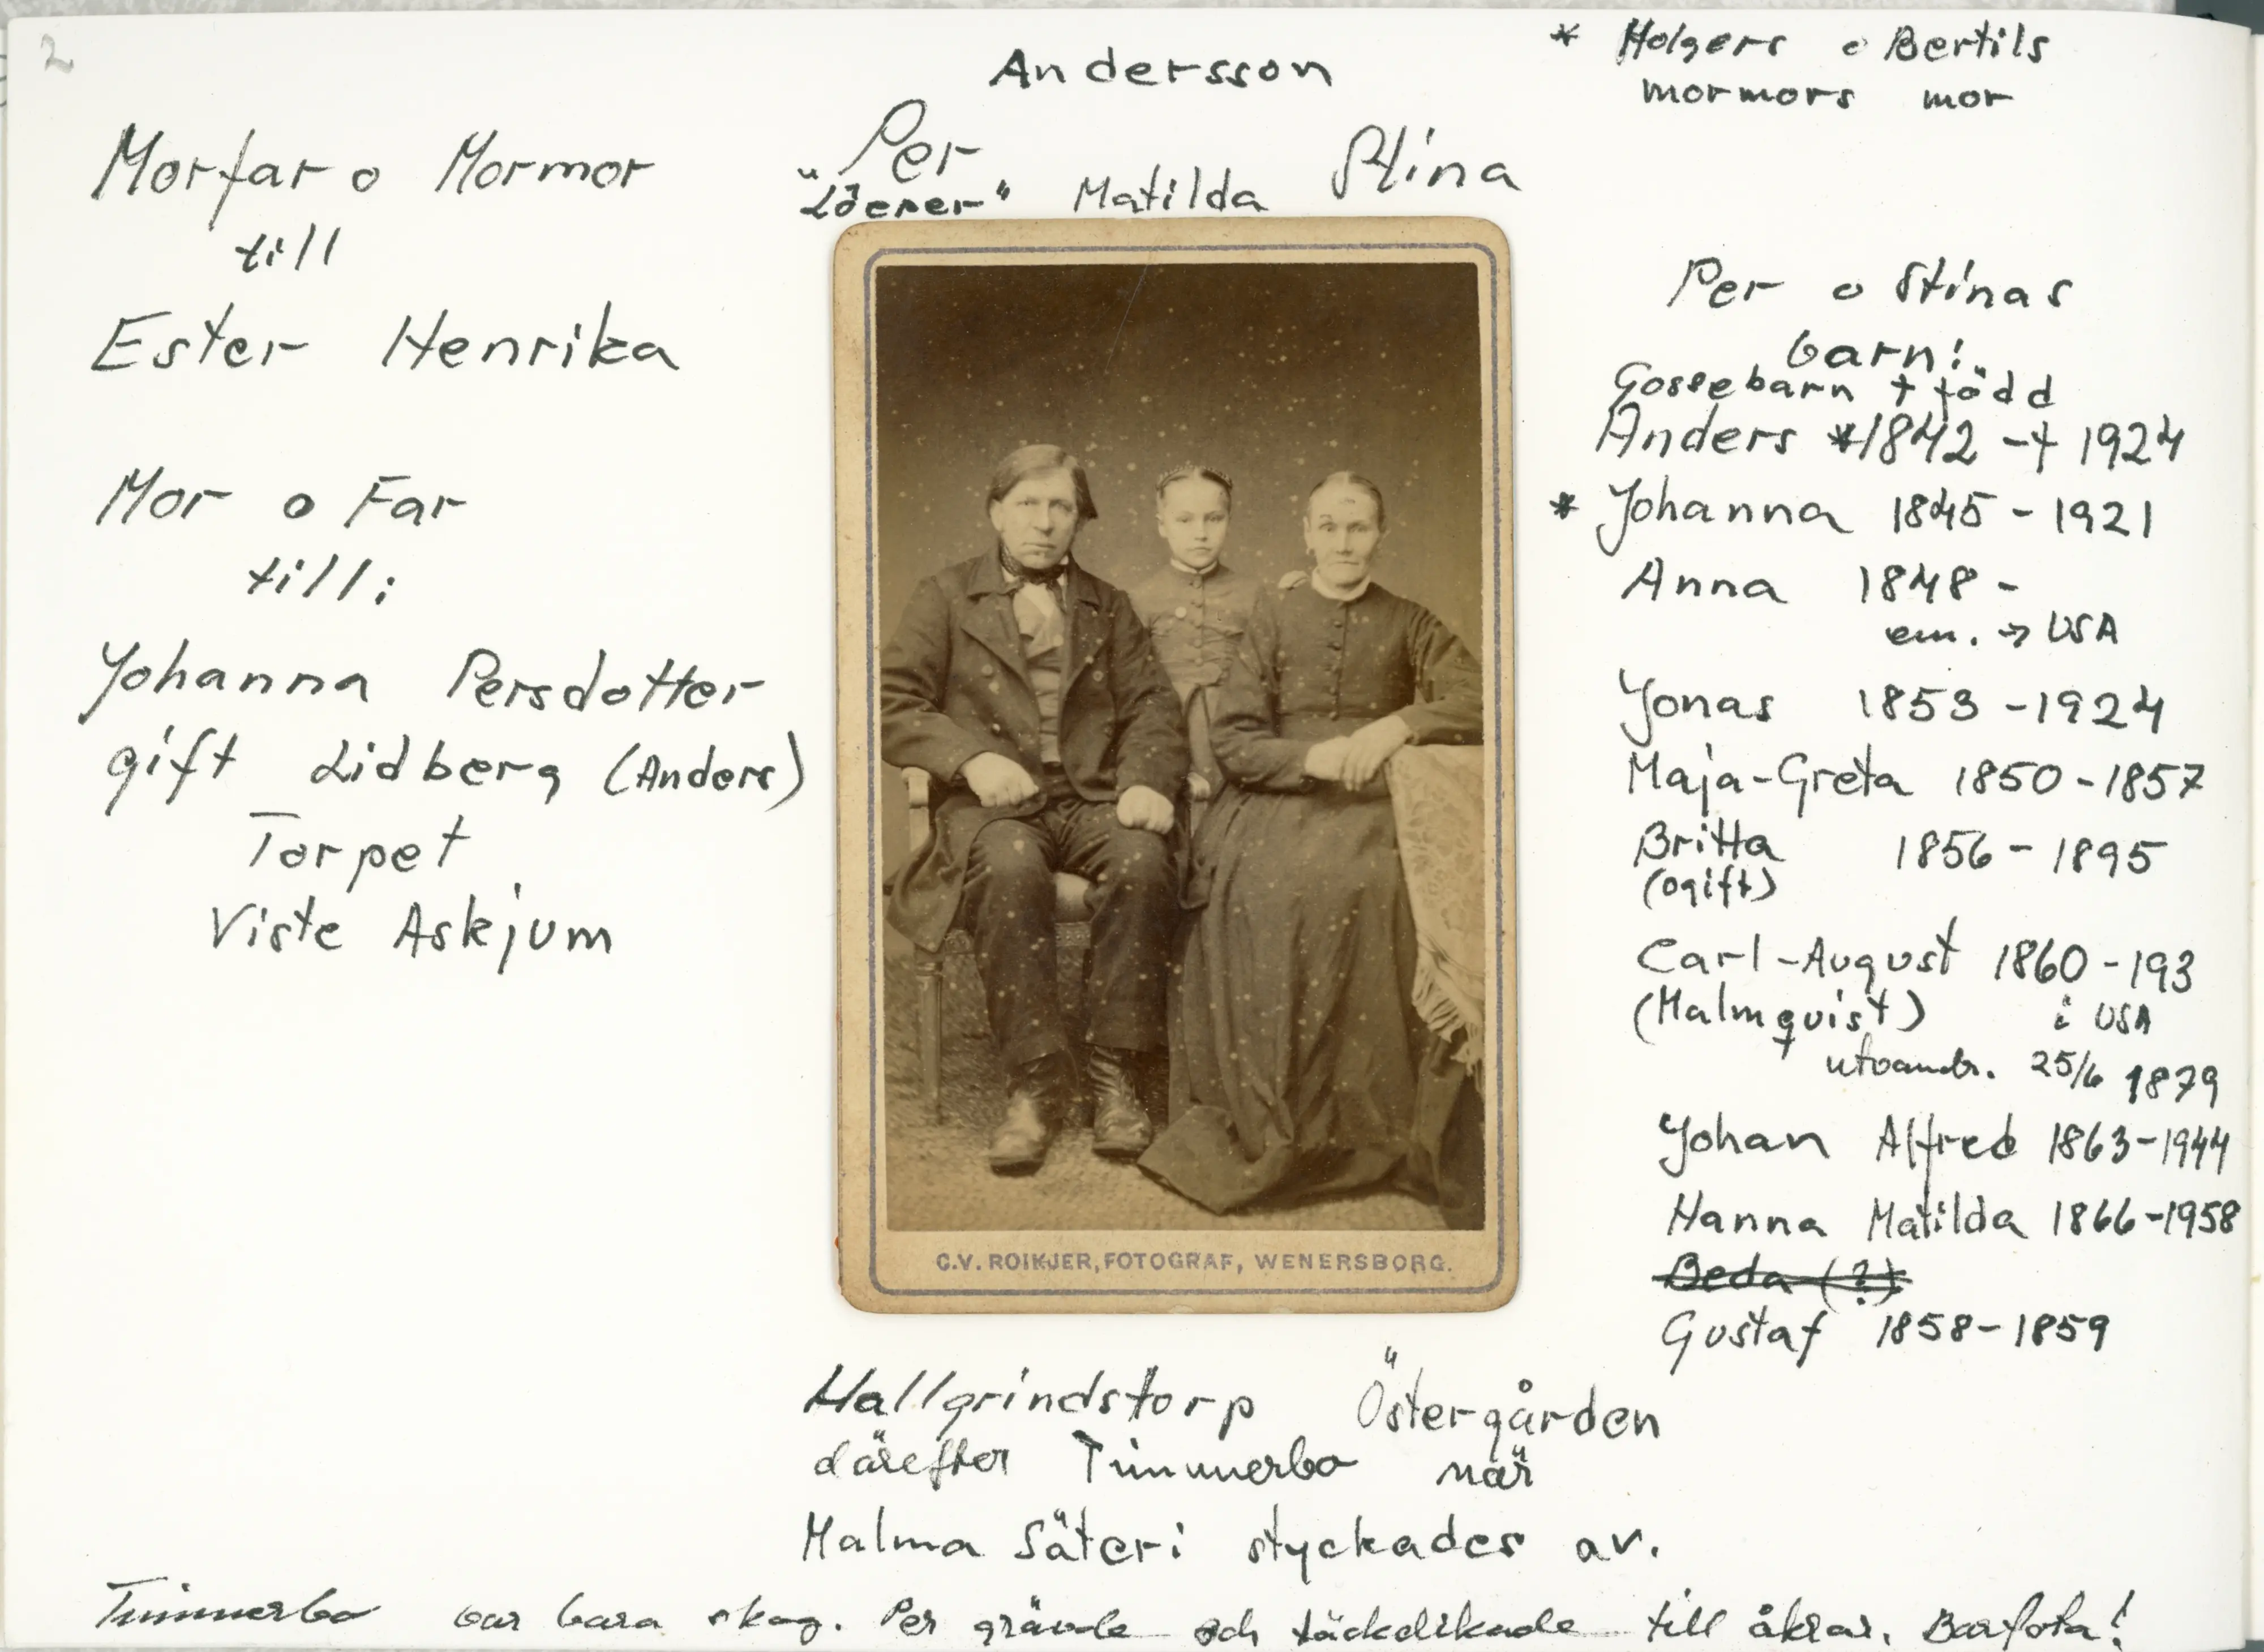 2
Andersson
* Holgers o Bertils
mormors mor
Morfar o Mormor
till
Ester Henrika
Mor o Far
till:
Johanna Persdotter
gift Lidberg (Anders)
Torpet
Viste Askjum
Per Matilda Stina
C.V. ROIKJER, FOTOGRAF, WENERSBORG.
Per o Stinas
barn:
Gossebarn + född
Anders *1842 - + 1924
* Johanna 1845 - 1921
Anna 1848 -
em. → USA
Jonas 1853 - 1924
Maja-Greta 1850 - 1857
Britta 1856 - 1895
(ogift)
Carl-August 1860 - 193
(Malmquist) i USA
utvandr. 25/6 1879
Johan Alfred 1863-1944
Hanna Matilda 1866-1958
Beda (?)
Gustaf 1858-1859
Hallgrindstorp Östergården
därefter Timmerbo när
Malma Säteri styckades av.
Timmerbo var bara skog. Per grävde och täckdikade till åkrar. Barfota!